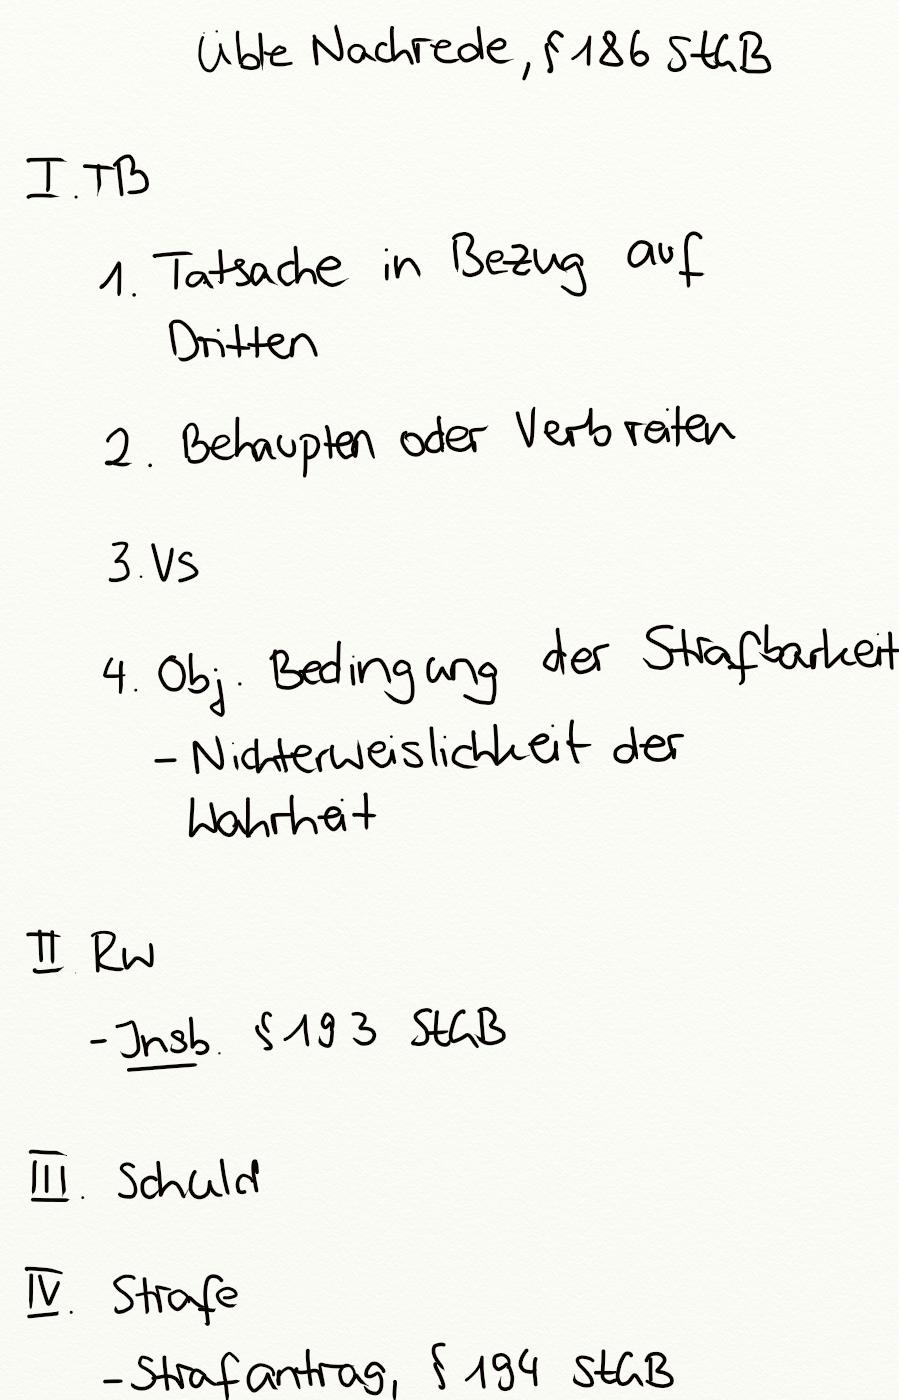 Üble Nachrede, § 186 StGB
I. TB
1. Tatsache in Bezug auf
Dritten
2. Behaupten oder Verbreiten
3. Vs
4. Obj. Bedingung der Strafbarkeit
- Nichterweislichkeit der
Wahrheit
II. RW
- Insb. § 193 StGB
III. Schuld
IV. Strafe
- Strafantrag, § 194 StGB